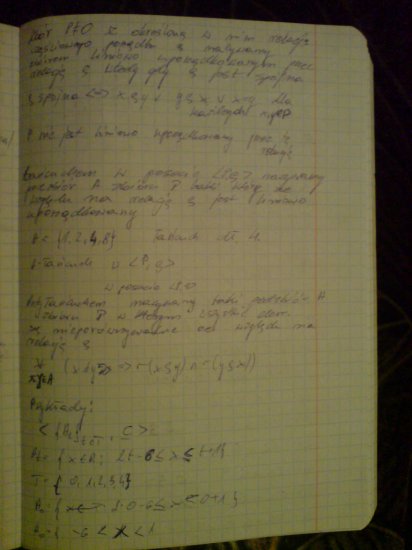 Zbiór P≠∅ z określoną w nim relacją
częściowego porządku ϱ nazywamy
zbiorem liniowo uporządkowanym przez
relację ϱ wtedy gdy ϱ jest spójna
ϱ spójna <=> xϱy ∨ yϱx ∨ x=y dla
każdych x,y∈P
P nie jest liniowo uporządkowany przez tę
relację
Łańcuchem w posecie <P,ϱ> nazywamy
podzbiór A zbioru P taki który ze
względu na relację ϱ jest liniowo
uporządkowany
A = {1, 2, 4, 8} łańcuch 4.
A-łańcuch <P, ϱ>
w posecie <P,ϱ>
Antyłańcuchem nazywamy taki podzbiór A
zbioru P w którym wszystkie elem.
są nieporównywalne ze względu na
relację ϱ
∀ (x≠y => ¬(xϱy) ∧ ¬(yϱx))
x,y∈A
Przykłady:
< {At}t∈T, ⊆ >
At = { x∈R; 2t-6≤x≤t+1}
T = { 0,1,2,3,4}
A₀ = { 2·0-6≤x≤0+1}
A₀ = { -6 < x < 1